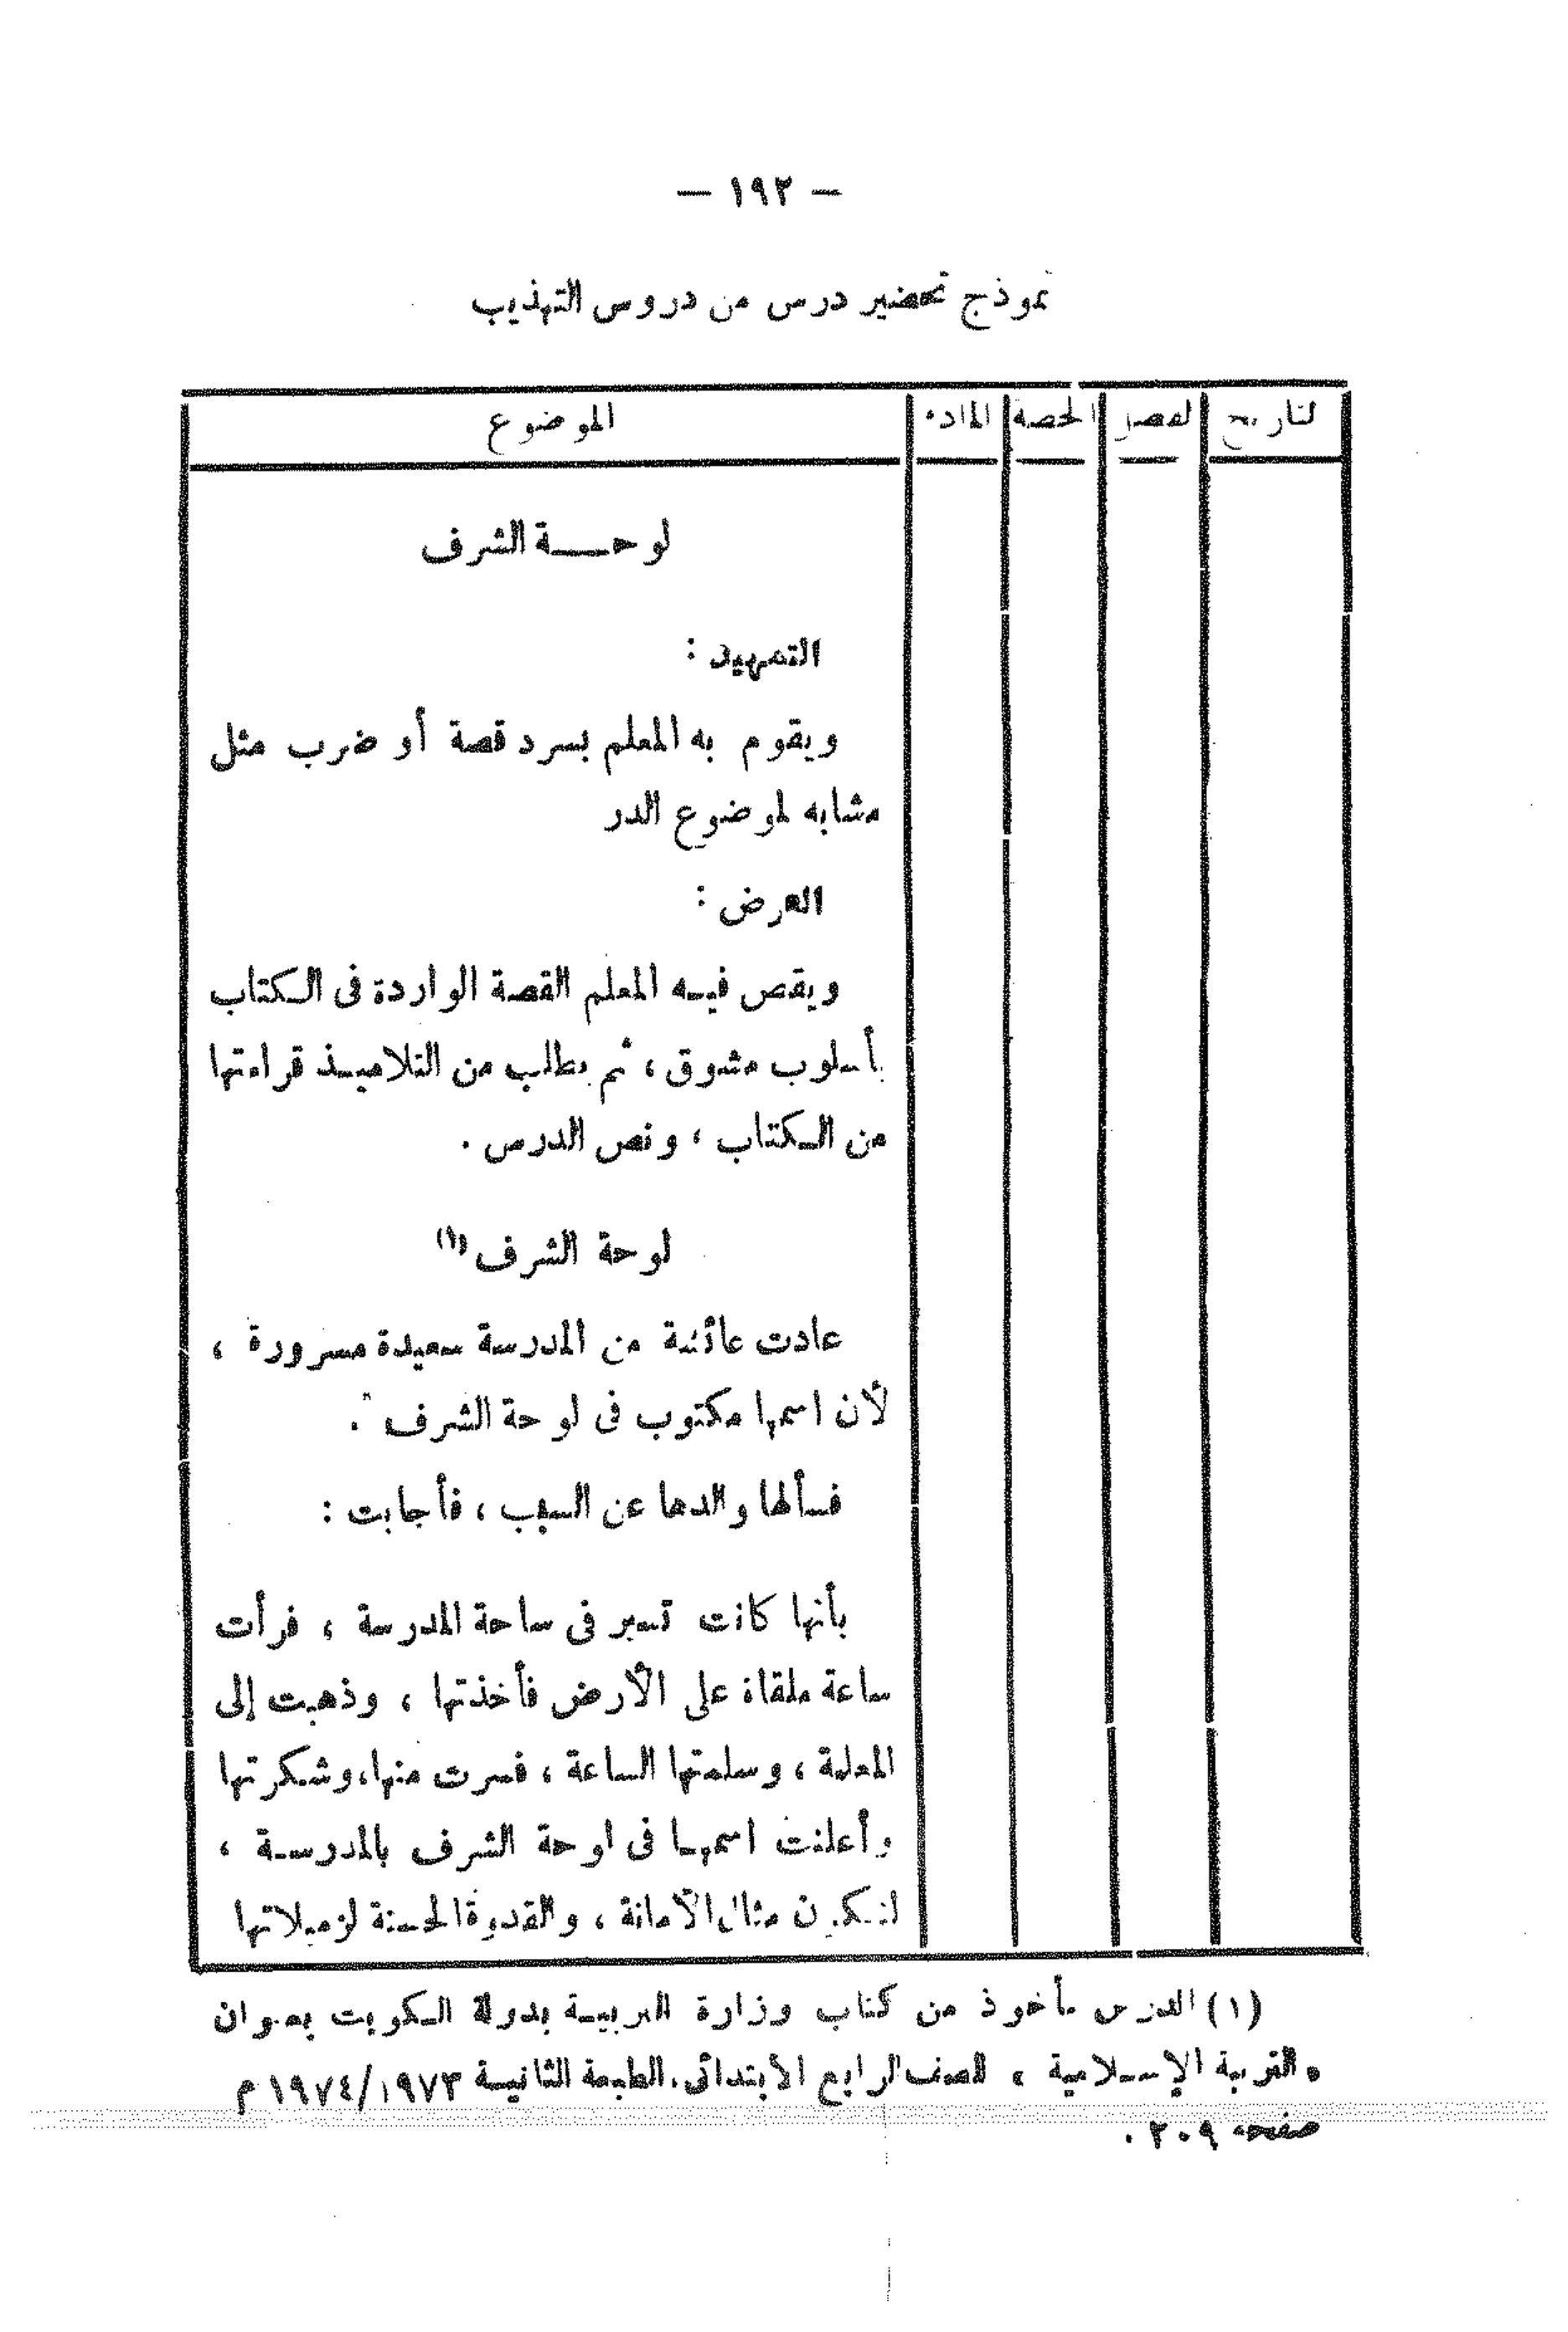 — ١٩٢ —
نموذج تحضير درس من دروس التهذيب
التاريخ الفصل الحصة المادة الموضوع
لوحة الشرف
التمهيد :
ويقوم به المعلم بسرد قصة أو ضرب مثل
مشابه لموضوع الدر
العرض :
ويقص فيه المعلم القصة الواردة فى الكتاب
بأسلوب مشوق ، ثم يطلب من التلاميذ قراءتها
من الكتاب ، ونص الدرس .
لوحة الشرف (١)
عادت عائشة من المدرسة سعيدة مسرورة ،
لأن اسمها مكتوب فى لوحة الشرف .
فسألها والدها عن السبب ، فأجابت :
بأنها كانت تسير فى ساحة المدرسة ، فرأت
ساعة ملقاة على الأرض فأخذتها ، وذهبت إلى
المعلمة ، وسلمتها الساعة ، فسرت منها، وشكرتها
وأعلنت اسمها فى لوحة الشرف بالمدرسة ،
لتكون مثال الأمانة ، والقدوة الحسنة لزميلاتها
(١) الدرس مأخوذ من كتاب وزارة التربية بدولة الكويت بعنوان
« التربية الإسلامية » للصف الرابع الابتدائى . الطبعة الثانية ١٩٧٤/١٩٧٣ م
صفحة ٢٠٩ .